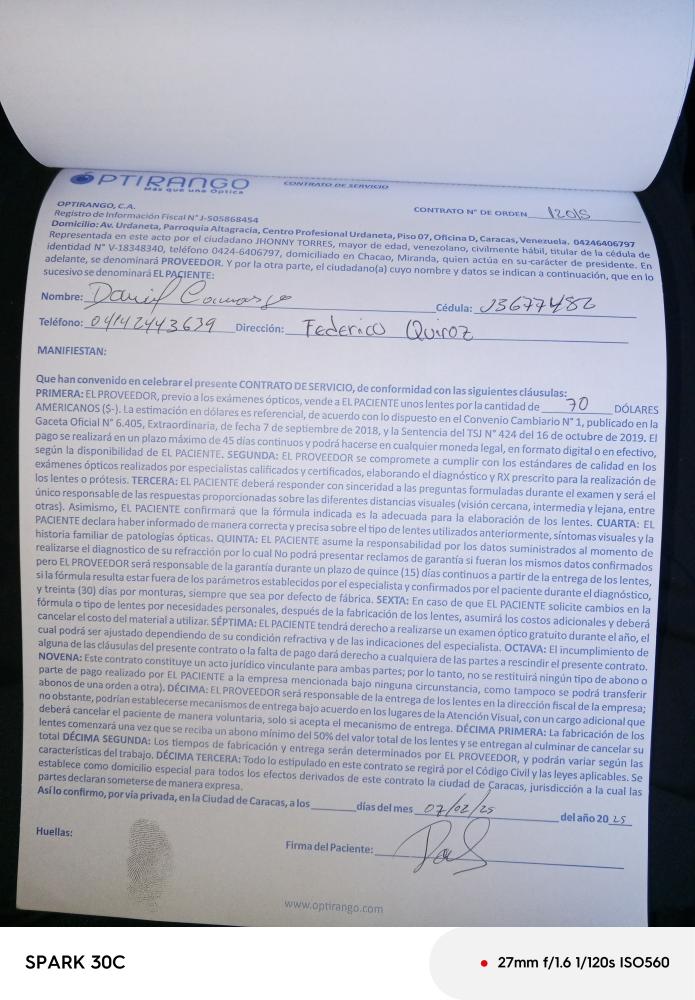 OPTIRANGO
Más que una Óptica
CONTRATO DE SERVICIO
OPTIRANGO, C.A.
CONTRATO N° DE ORDEN
Registro de Información Fiscal N° J-505868454
Domicilio: Av. Urdaneta, Parroquia Altagracia, Centro Profesional Urdaneta, Piso 07, Oficina D, Caracas, Venezuela. 04246406797
Representada en este acto por el ciudadano JHONNY TORRES, mayor de edad, venezolano, civilmente hábil, titular de la cédula de
identidad N° V-18348340, teléfono 0424-6406797, domiciliado en Chacao, Miranda, quien actúa en su carácter de presidente. En
adelante, se denominará PROVEEDOR. Y por la otra parte, el ciudadano(a) cuyo nombre y datos se indican a continuación, que en lo
sucesivo se denominará EL PACIENTE:
Nombre: Daniel
Cédula:
Teléfono: 04142443639 Dirección: Federico Quiroz
MANIFIESTAN:
Que han convenido en celebrar el presente CONTRATO DE SERVICIO, de conformidad con las siguientes cláusulas:
PRIMERA: EL PROVEEDOR, previo a los exámenes ópticos, vende a EL PACIENTE unos lentes por la cantidad de 70 DÓLARES
AMERICANOS ($-). La estimación en dólares es referencial, de acuerdo con lo dispuesto en el Convenio Cambiario N° 1, publicado en la
Gaceta Oficial N° 6.405, Extraordinaria, de fecha 7 de septiembre de 2018, y la Sentencia del TSJ N° 424 del 16 de octubre de 2019. El
pago se realizará en un plazo máximo de 45 días continuos y podrá hacerse en cualquier moneda legal, en formato digital o en efectivo,
según la disponibilidad de EL PACIENTE. SEGUNDA: EL PROVEEDOR se compromete a cumplir con los estándares de calidad en los
exámenes ópticos realizados por especialistas calificados y certificados, elaborando el diagnóstico y RX prescrito para la realización de
los lentes o prótesis. TERCERA: EL PACIENTE deberá responder con sinceridad a las preguntas formuladas durante el examen y será el
único responsable de las respuestas proporcionadas sobre las diferentes distancias visuales (visión cercana, intermedia y lejana, entre
otras). Asimismo, EL PACIENTE confirmará que la fórmula indicada es la adecuada para la elaboración de los lentes. CUARTA: EL
PACIENTE declara haber informado de manera correcta y precisa sobre el tipo de lentes utilizados anteriormente, síntomas visuales y la
historia familiar de patologías ópticas. QUINTA: EL PACIENTE asume la responsabilidad por los datos suministrados al momento de
realizarse el diagnostico de su refracción por lo cual No podrá presentar reclamos de garantía si fueran los mismos datos confirmados
pero EL PROVEEDOR será responsable de la garantía durante un plazo de quince (15) días continuos a partir de la entrega de los lentes,
si la fórmula resulta estar fuera de los parámetros establecidos por el especialista y confirmados por el paciente durante el diagnóstico,
y treinta (30) días por monturas, siempre que sea por defecto de fábrica. SEXTA: En caso de que EL PACIENTE solicite cambios en la
fórmula o tipo de lentes por necesidades personales, después de la fabricación de los lentes, asumirá los costos adicionales y deberá
cancelar el costo del material a utilizar. SÉPTIMA: EL PACIENTE tendrá derecho a realizarse un examen óptico gratuito durante el año, el
cual podrá ser ajustado dependiendo de su condición refractiva y de las indicaciones del especialista. OCTAVA: El incumplimiento de
alguna de las cláusulas del presente contrato o la falta de pago dará derecho a cualquiera de las partes a rescindir el presente contrato.
NOVENA: Este contrato constituye un acto jurídico vinculante para ambas partes; por lo tanto, no se restituirá ningún tipo de abono o
parte de pago realizado por EL PACIENTE a la empresa mencionada bajo ninguna circunstancia, como tampoco se podrá transferir
abonos de una orden a otra). DÉCIMA: EL PROVEEDOR será responsable de la entrega de los lentes en la dirección fiscal de la empresa;
no obstante, podrían establecerse mecanismos de entrega bajo acuerdo en los lugares de la Atención Visual, con un cargo adicional que
deberá cancelar el paciente de manera voluntaria, solo si acepta el mecanismo de entrega. DÉCIMA PRIMERA: La fabricación de los
lentes comenzará una vez que se reciba un abono mínimo del 50% del valor total de los lentes y se entregan al culminar de cancelar su
total DÉCIMA SEGUNDA: Los tiempos de fabricación y entrega serán determinados por EL PROVEEDOR, y podrán variar según las
características del trabajo. DÉCIMA TERCERA: Todo lo estipulado en este contrato se regirá por el Código Civil y las leyes aplicables. Se
establece como domicilio especial para todos los efectos derivados de este contrato la ciudad de Caracas, jurisdicción a la cual las
partes declaran someterse de manera expresa.
Así lo confirmo, por vía privada, en la Ciudad de Caracas, a los días del mes 07/02/25 del año 2025
Huellas:
Firma del Paciente:
www.optirango.com
SPARK 30C
27mm f/1.6 1/120s ISO560